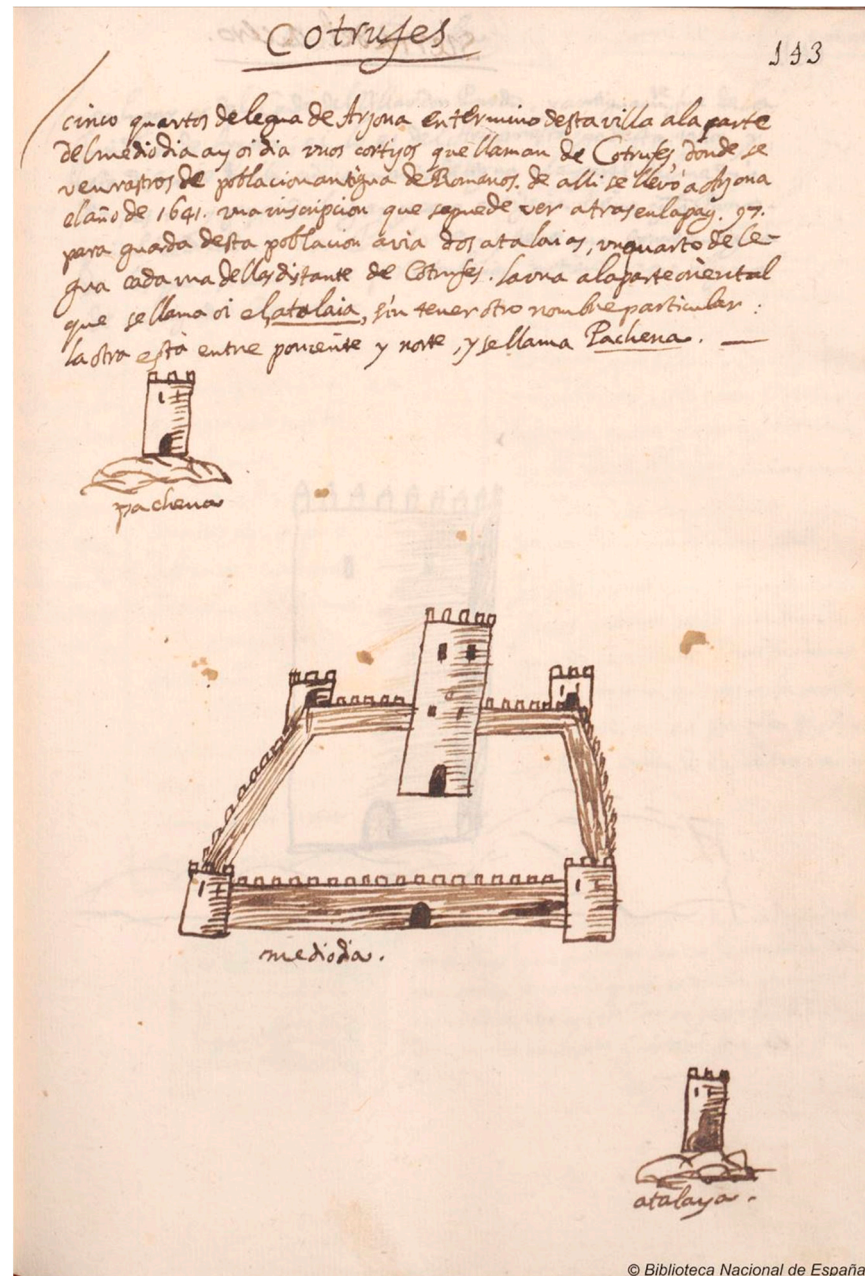 Cotrufes
143
cinco quartos de legua de Arjona en termino desta villa a la parte
del medio dia ay oi dia unos cortijos que llaman de Cotrufes, donde se
ven rastros de poblacion antigua de Romanos. de alli se llevó a Arjona
el año de 1641. una inscripcion que se puede ver atras en la pag. 97.
para guarda desta poblacion avia dos atalaias, un quarto de le-
gua cada una dellas distante de Cotrufes. la una a la parte oriental
que se llama oi el atalaia, sin tener otro nombre particular:
la otra está entre poniente y norte, y se llama Pachena.
pachena
mediodia.
atalaya.
© Biblioteca Nacional de España